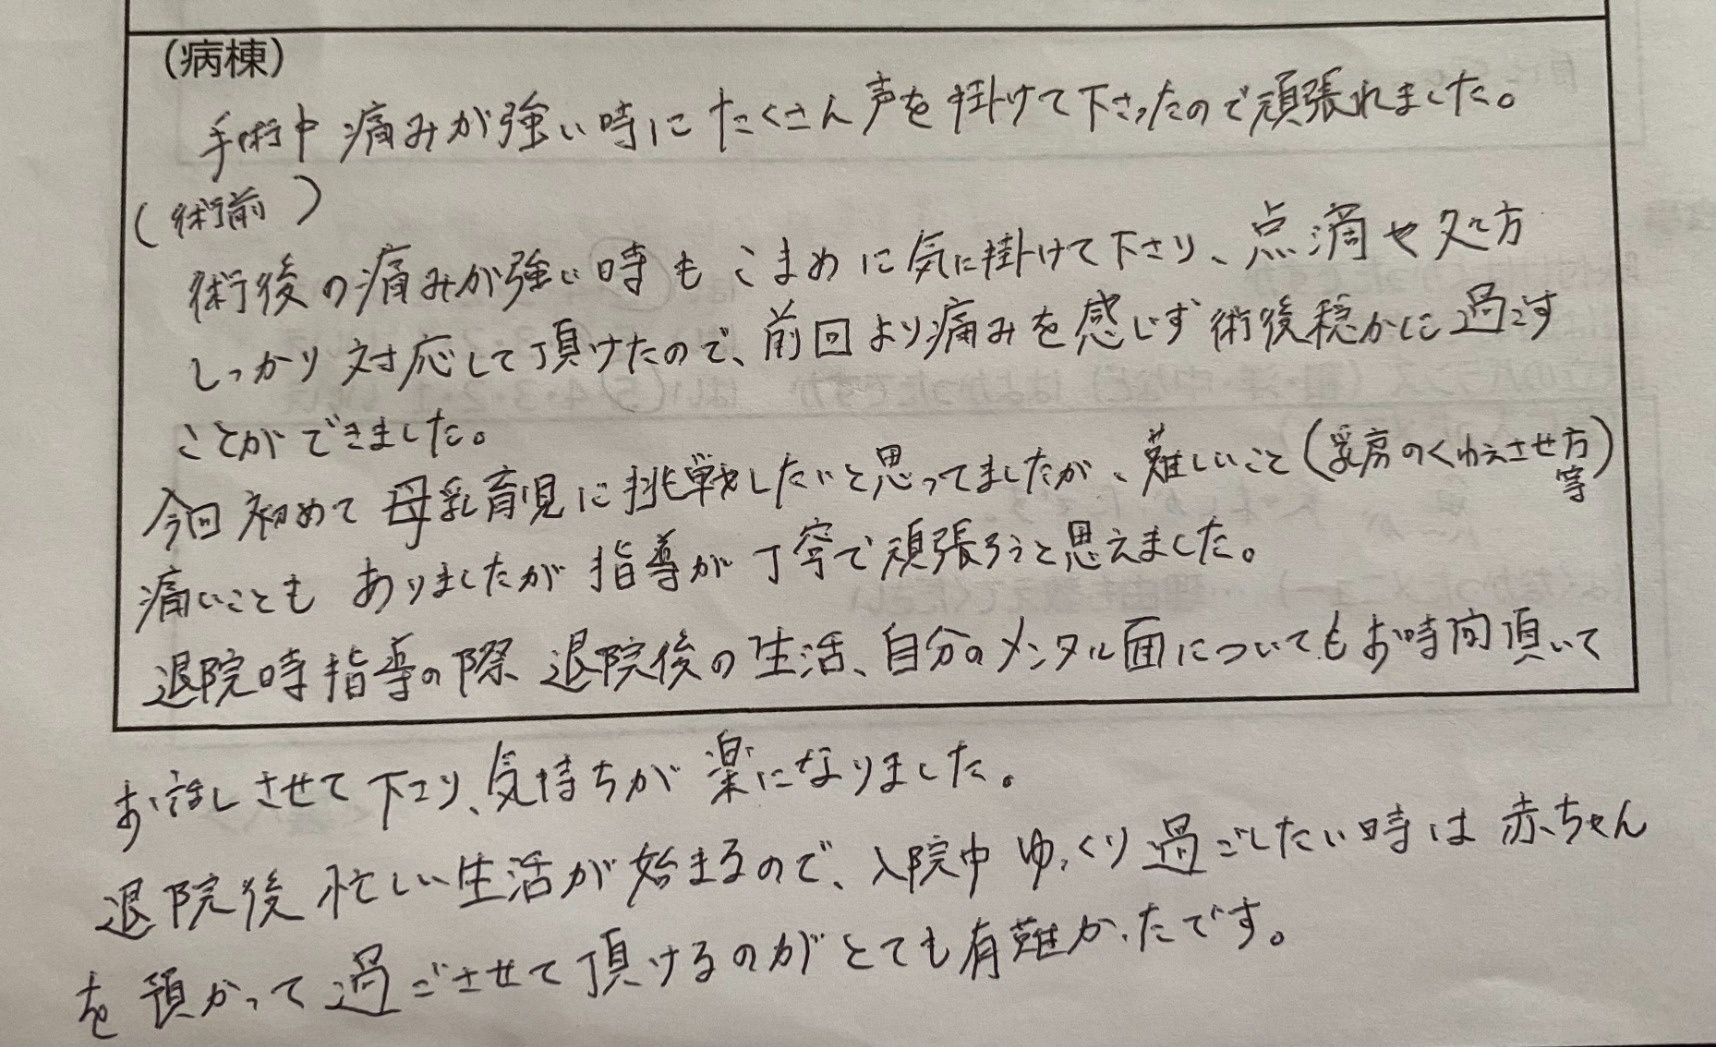 (病棟)
手術中 痛みが強い時に たくさん声を掛けて下さったので頑張れました。
(術前)
術後の痛みが強い時も こまめに気に掛けて下さり、点滴や処方
しっかり対応して頂けたので、前回より痛みを感じず術後穏かに過ごす
ことができました。
今回初めて母乳育児に挑戦したいと思ってましたが、難しいこと(乳房のくわえさせ方等)
痛いことも ありましたが 指導が丁寧で頑張ろうと思えました。
退院時指導の際 退院後の生活、自分のメンタル面についてもお時間頂いて
お話しさせて下さり、気持ちが楽になりました。
退院後忙しい生活が始まるので、入院中ゆっくり過ごしたい時は赤ちゃん
を預かって過ごさせて頂けるのがとても有難かったです。